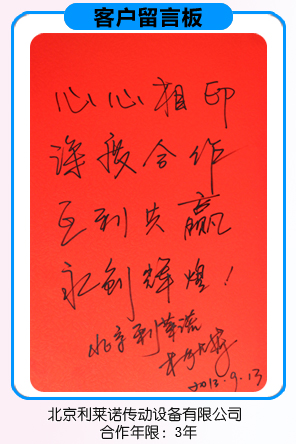 客户留言板
心心相印
深度合作
互利共赢
永创辉煌！
北京利莱诺
2013.9.13
北京利莱诺传动设备有限公司
合作年限：3年